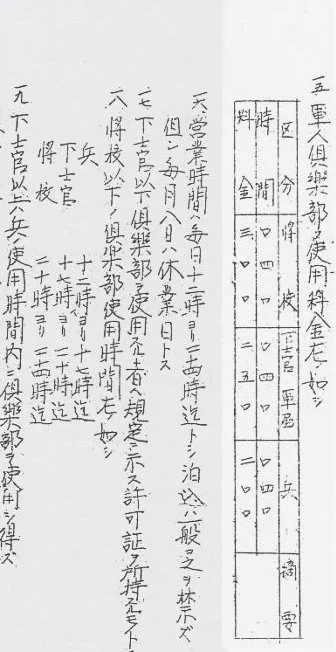 一五 軍人倶楽部ヲ使用料金左ノ如シ
区分 将校 下士官 軍属 兵 摘要
時間 〇四〇 〇四〇 〇四〇
料金 三〇〇 二五〇 二〇〇
一六 営業時間ハ毎日十二時ヨリ二十四時迄トシ泊込ハ一般ニ之ヲ禁示ズ
但シ毎月八日ハ休業日トス
一七 下士官以下倶楽部ヲ使用スル者ハ規定ニ示ス許可証ヲ所持スルモノト
一八 将校以下ノ倶楽部使用時間左ノ如シ
兵 十二時ヨリ十七時迄
下士官 十七時ヨリ二十時迄
将校 二十時ヨリ二十四時迄
一九 下士官以下ハ兵ノ使用時間内ニ倶楽部ヲ使用シ得ズ